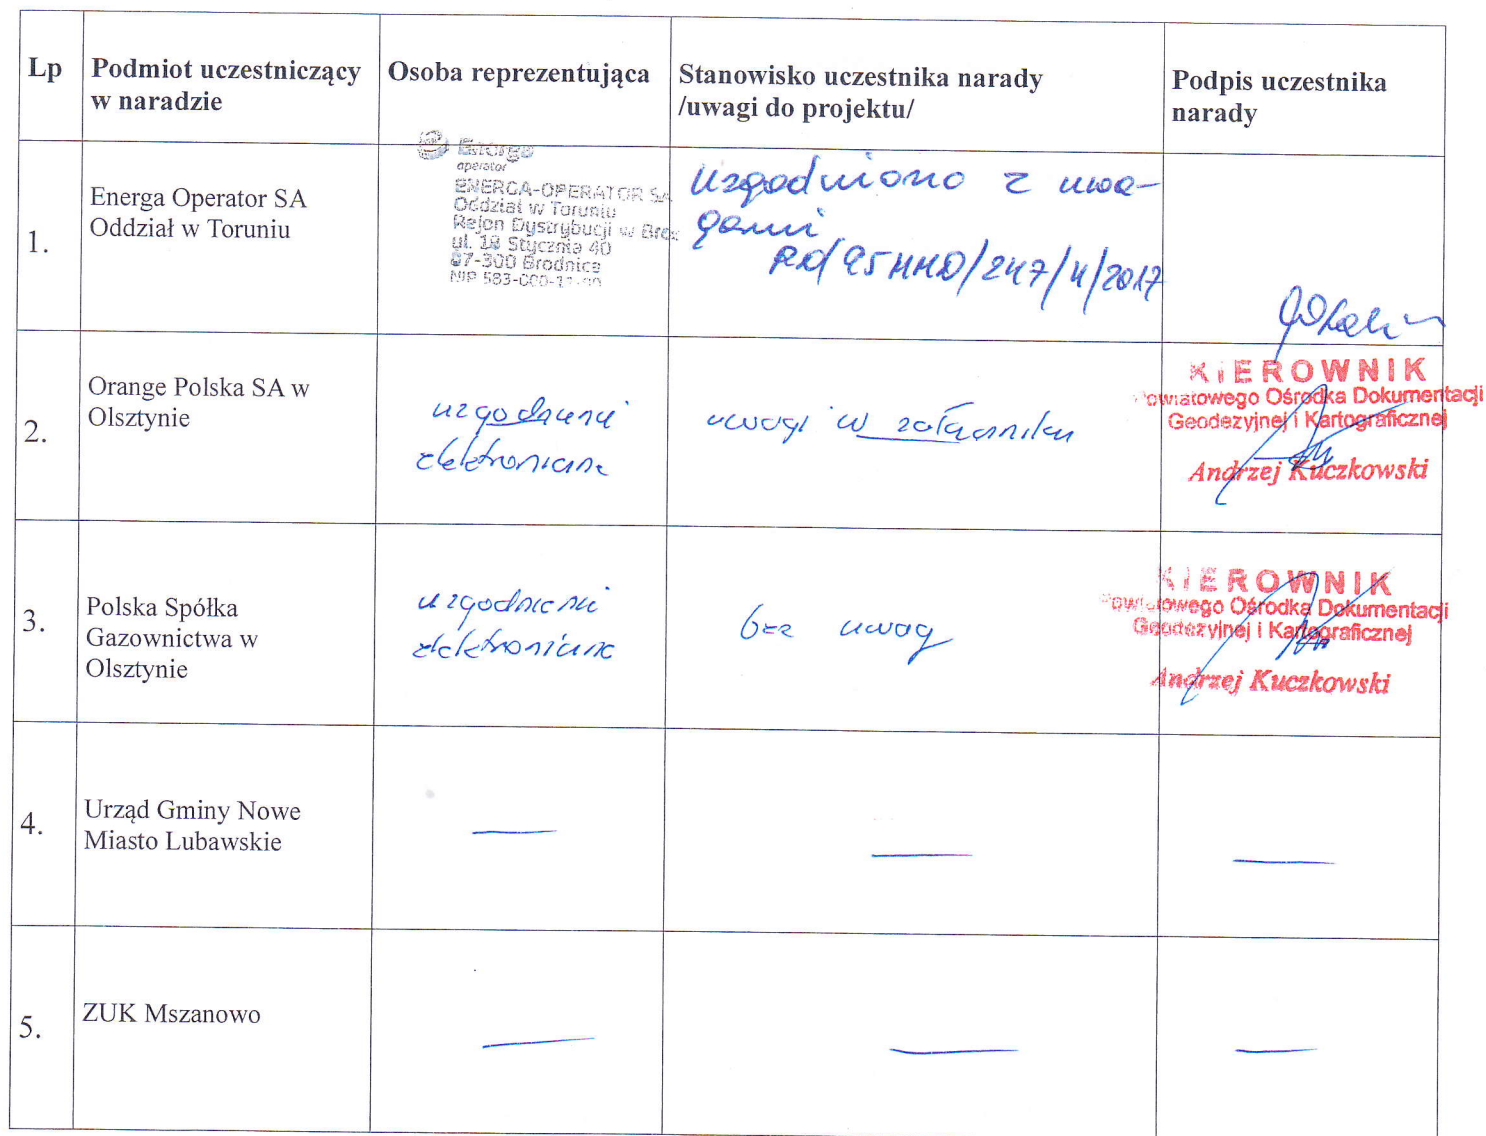 Lp
Podmiot uczestniczący
w naradzie
Osoba reprezentująca
Stanowisko uczestnika narady
/uwagi do projektu/
Podpis uczestnika
narady
1.
Energa Operator SA
Oddział w Toruniu
Energa
operator
ENERGA-OPERATOR SA
Oddział w Toruniu
Rejon Dystrybucji w
ul. 18 Stycznia 40
87-300 Brodnica
NIP 583-000-11-
uzgodniono z uwa-
gami
/247/4/2017
2.
Orange Polska SA w
Olsztynie
uzgodnienie
elektroniczne
uwagi w załączniku
KIEROWNIK
Powiatowego Ośrodka Dokumentacji
Geodezyjnej i Kartograficznej
Andrzej Kuczkowski
3.
Polska Spółka
Gazownictwa w
Olsztynie
uzgodnienie
elektroniczne
bez uwag
KIEROWNIK
Powiatowego Ośrodka Dokumentacji
Geodezyjnej i Kartograficznej
Andrzej Kuczkowski
4.
Urząd Gminy Nowe
Miasto Lubawskie
5.
ZUK Mszanowo